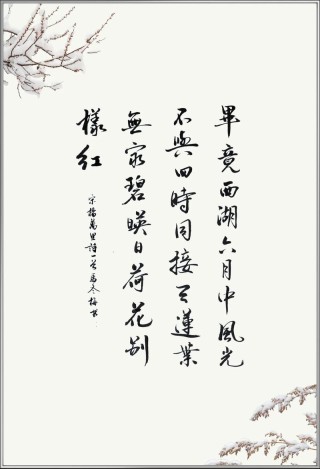 畢竟西湖六月中風光
不與四時同接天蓮葉
無窮碧暎日荷花别
樣紅
宋楊萬里詩一首為冬梅书